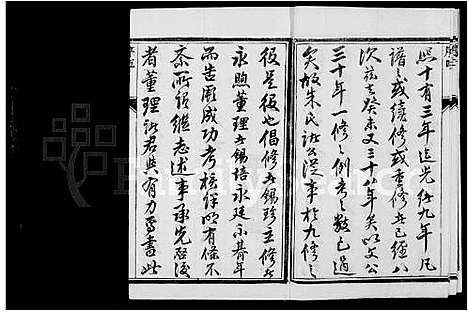 熙十有三年迄光緒九年凡
譜之或續修或重修者已經八
次茲者癸未又三十八年矣以文公
三十年一修之例考之數已過
矣故朱氏諸公從事於九修之
役是役也倡修者錫珍主修者
永煦董理者錫培永廷不朞年
而告厥成功考核詳明有條不
紊所謂繼志述事承先啟後
者董理諸君與有力焉書此
FamilySearch